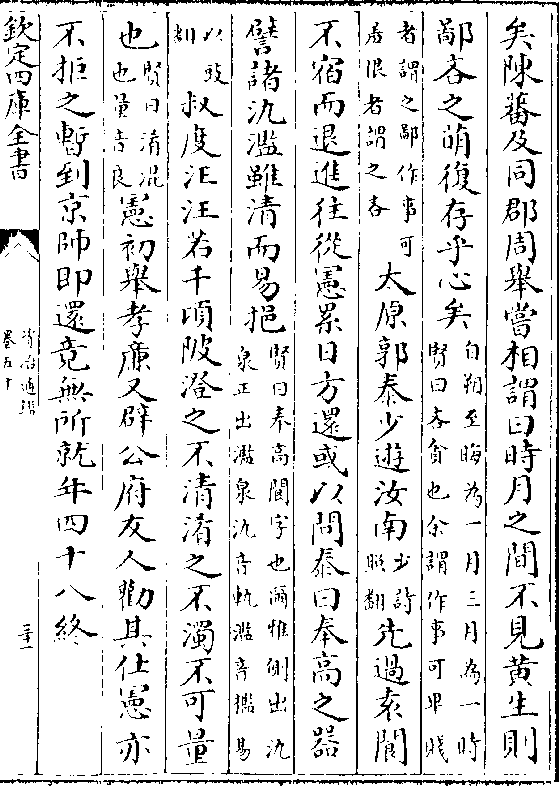 矣陳蕃及同郡周舉嘗相謂曰時月之間不見黄生則
鄙吝之萌復存乎心矣自朔至晦為一月三月為一時賢曰吝貪也余謂作事可卑賤
者謂之鄙作事可羞恨者謂之吝太原郭泰少遊汝南少詩照翻先過袁閬
不宿而退進往從憲累日方還或以問泰曰奉高之器
譬諸氿濫雖清而易挹賢曰奉高閬字也爾雅側出氿泉正出濫泉氿音軌濫音檻易
以豉翻叔度汪汪若千頃陂澄之不清淆之不濁不可量
也賢曰淆混也量音良憲初舉孝廉又辟公府友人勸其仕憲亦
不拒之暫到京師即還竟無所就年四十八終
欽定四庫全書
資治通鑑
卷五十
三十一